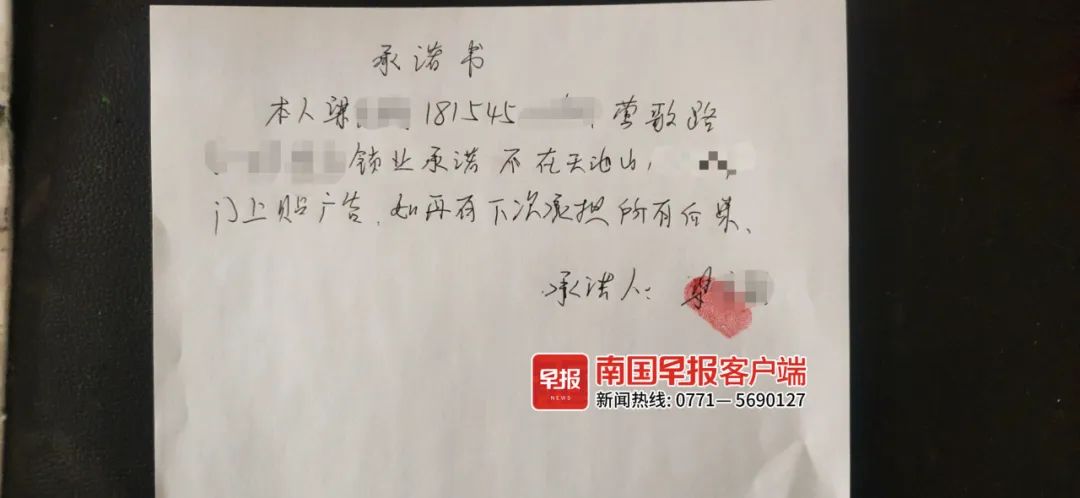 承诺书
本人梁 181545 莺歌路
锁业承诺不在天池山,
门上贴广告.如再有下次承担所有后果、
承诺人: 梁
早报 南国早报客户端
NEWS 新闻热线: 0771—5690127